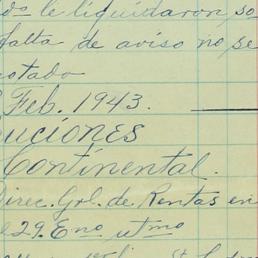 dos le liquidaron, so
falta de aviso no se
otado
Feb. 1943.
uciones
Continental.
Direc. Grl. de Rentas en
e 29. Eno. utmo